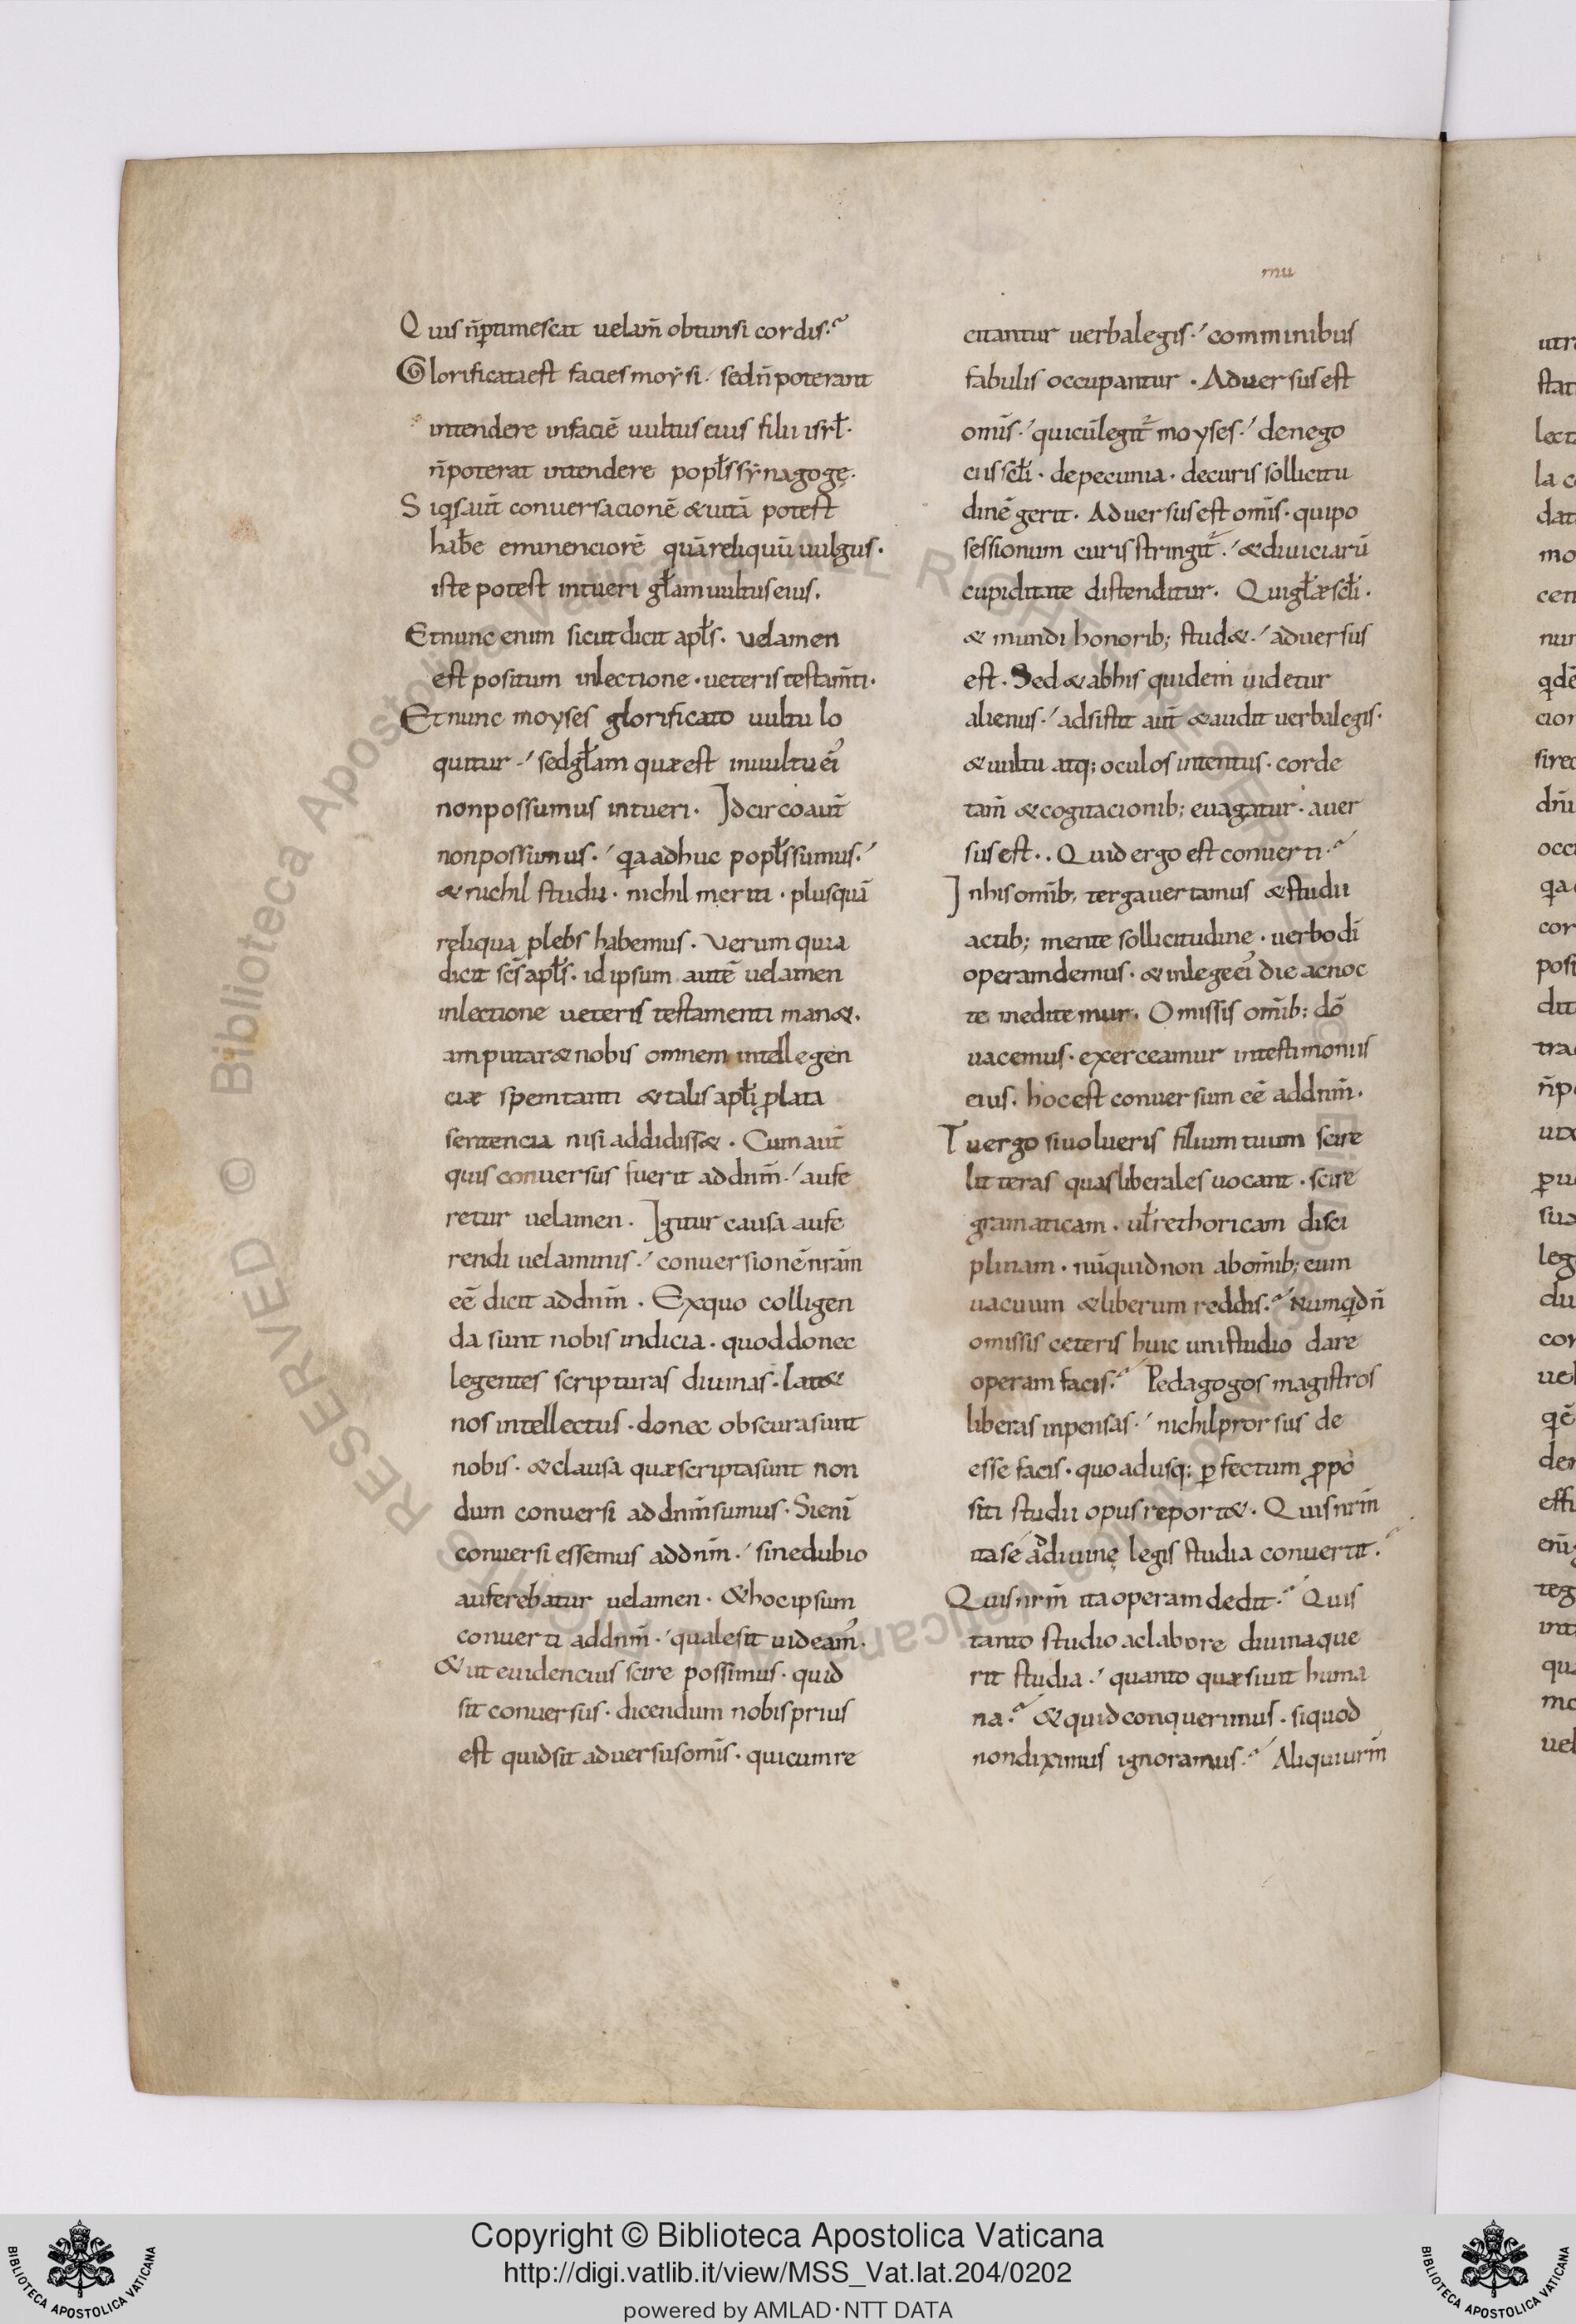 mu
Quis n̄ p̱timescat uelam̄ obtunsi cordis·
Glorificata est facies moysi· sed n̄ poterant
intendere in faciē uultus eius filii isrł·
n̄ poterat intendere popłs synagogę·
Siq̱s aut̄ conuersacionē &uitā potest
habe eminenciorē quā reliquū uulgus·
iste potest intueri głam uultus eius.
Et nunc enim sicut dicit apłs· uelamen
est positum in lectione· ueteris testam̄ti·
Et nunc moyses glorificato uultu lo
quitur· sed głam quæ est in uultu ei᾿
non possumus intueri· Idcirco aut̄
non possumus· q̱a adhuc popłs sumus·
& nichil studii· nichil meriti· plus quā
reliqua plebs habemus· Verum quia
dicit scs̄ apłs· id ipsum autē uelamen
in lectione ueteris testamenti man&.
amputar& nobis omnem intellegen
ciæ spem tanti &talis apłi ꝓlata
sentencia nisi addidiss&· Cum aut̄
quis conuersus fuerit ad dnm̄· aufe
retur uelamen· Igitur causa aufe
rendi uelaminis· conuersionē nr̄am
eē dicit ad dnm̄· Ex quo colligen
da sunt nobis indicia· quod donec
legentes scripturas diuinas· lat&
nos intellectus· donec obscura sunt
nobis· &clausa quæ scripta sunt non
dum conuersi ad dnm̄ sumus· Si eni̅
conuersi essemus ad dnm̄· sine dubio
auferebatur uelamen· &hoc ipsum
conuerti ad dnm̄· quale sit uideam᾿·
&ut euidencius scire possimus· quid
sit conuersus· dicendum nobis prius
est quid sit aduersus omīs· qui cum re
citantur uerba legis· comminibus
fabulis occupantur· Aduersus est
omīs· qui cū legit᷑ moyses· de nego
ciis scłi· de pecunia· de curis sollicitu
dinē gerit· Aduersus est omīs· qui po
sessionum curis stringit᷑· &diuiciarū
cupiditate distenditur· Qui głæ scłi·
& mundi honorib; stud&· aduersus
est· Sed &ab his quidem uidetur
alienus· adsistit aut̄ &audit uerba legis·
&uultu atq; oculos intentus· corde
tam̄ &cogitacionib; euagatur· auer
sus est·. Quid ergo est conuerti·
In his omīb; terga uertamus &studii
actib; mente sollicitudine· uerbo di̅
operam demus· &in lege ei᾿ die ac noc
te meditemur. Omissis omīb; dō
uacemus· exerceamur in testimoniis
eius. hoc est conuersum eē ad dnm̄·
Tu ergo si uolueris filium tuum scire
litteras quas liberales uocant· scire
gramaticam· uł rethoricam disci
plinam· nūquid non ab omīb; eum
uacuum &liberum reddis· Numq̱d n̄
omissis ceteris huic uni studio dare
operam facis· Pedagogos magistros
liberas inpensas· nichil prorsus de
esse facis· quo adusq; ꝑfectum ꝓpo
siti studii opus report&· Quis nrm̄
ita sē ad diuinę legis studia conuertit·
Quis nrm̄ ita operam dedit· Quis
tanto studio ac labore diuina que
rit studia· quanto quæsiuit huma
na· &quid conquerimus· si quod
non diximus ignoramus· Aliqui urm̄
utr
stat
lect
la c
dat
mo
cen
nur
q̱dē
cion
sirec
dn̄i
occu
q̱a
cor
posi
dit
tra
n̄ p
utx
ꝑu
sua
leg
du
con
uel
q̱ē
der
effi
eni̅
teg
int
qua
mo
uel
© Biblioteca Apostolica Vaticana. ALL RIGHTS RESERVED
BIBLIOTECA APOSTOLICA VATICANA
Copyright © Biblioteca Apostolica Vaticana
http://digi.vatlib.it/view/MSS_Vat.lat.204/0202
powered by AMLAD·NTT DATA
BIBLIOTECA APOSTOLICA VATICANA